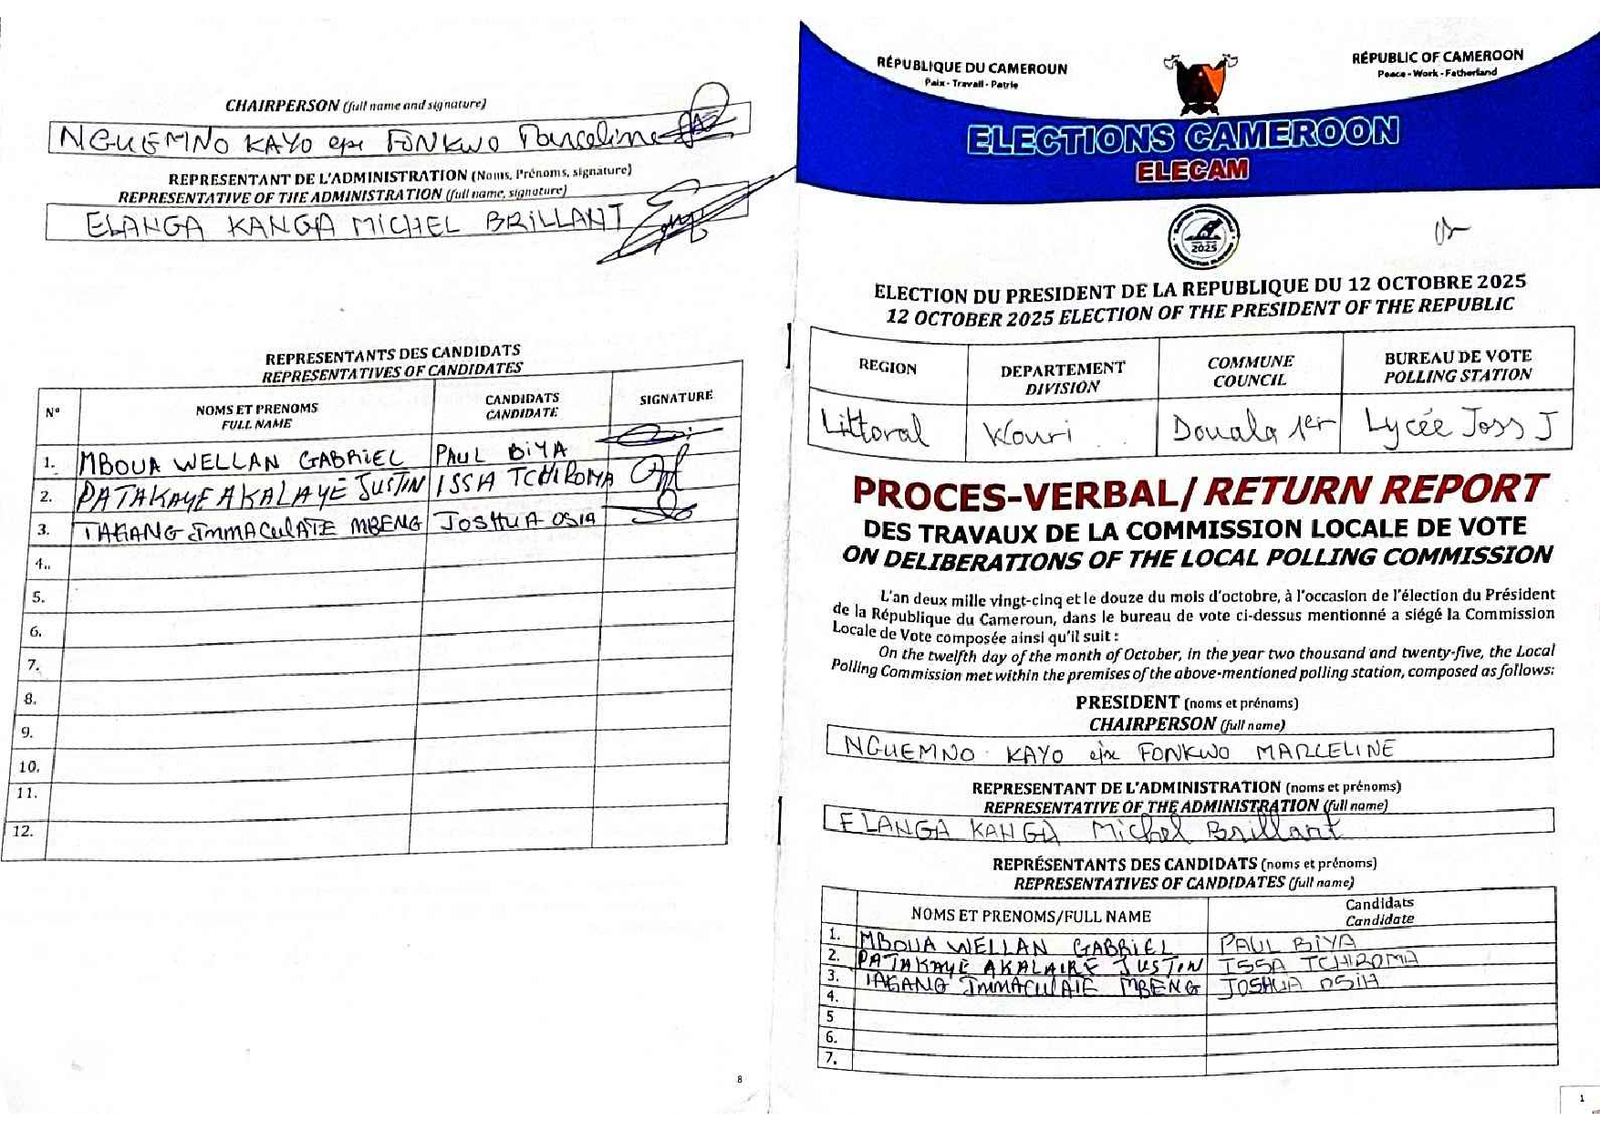 CHAIRPERSON (full name and signature)
NGUEMNO KAYO epse FONKWO Marceline
REPRESENTANT DE L'ADMINISTRATION (Noms, Prénoms, signature)
REPRESENTATIVE OF THE ADMINISTRATION (full name, signature)
ELANGA KANGA MICHEL BRILLANT
REPRESENTANTS DES CANDIDATS
REPRESENTATIVES OF CANDIDATES
N° NOMS ET PRENOMS FULL NAME CANDIDATS CANDIDATE SIGNATURE
1. MBOUA WELLAN GABRIEL PAUL BIYA
2. PATAKAYE AKALAYE JUSTIN ISSA TCHIROMA
3. TAKANG IMMACULATE MBENG JOSHUA OSIA
4.
5.
6.
7.
8.
9.
10.
11.
12.
8
RÉPUBLIQUE DU CAMEROUN
Paix - Travail - Patrie
RÉPUBLIC OF CAMEROON
Peace - Work - Fatherland
ELECTIONS CAMEROON
ELECAM
2025
ELECTION DU PRESIDENT DE LA REPUBLIQUE DU 12 OCTOBRE 2025
12 OCTOBER 2025 ELECTION OF THE PRESIDENT OF THE REPUBLIC
REGION DEPARTEMENT DIVISION COMMUNE COUNCIL BUREAU DE VOTE POLLING STATION
Littoral Wouri Douala 1er Lycée Joss J
PROCES-VERBAL/ RETURN REPORT
DES TRAVAUX DE LA COMMISSION LOCALE DE VOTE
ON DELIBERATIONS OF THE LOCAL POLLING COMMISSION
L'an deux mille vingt-cinq et le douze du mois d'octobre, à l'occasion de l'élection du Président
de la République du Cameroun, dans le bureau de vote ci-dessus mentionné a siégé la Commission
Locale de Vote composée ainsi qu'il suit :
On the twelfth day of the month of October, in the year two thousand and twenty-five, the Local
Polling Commission met within the premises of the above-mentioned polling station, composed as follows:
PRESIDENT (noms et prénoms)
CHAIRPERSON (full name)
NGUEMNO KAYO epse FONKWO MARCELINE
REPRESENTANT DE L'ADMINISTRATION (noms et prénoms)
REPRESENTATIVE OF THE ADMINISTRATION (full name)
ELANGA KANGA Michel Brillant
REPRÉSENTANTS DES CANDIDATS (noms et prénoms)
REPRESENTATIVES OF CANDIDATES (full name)
NOMS ET PRENOMS/FULL NAME Candidats Candidate
1. MBOUA WELLAN GABRIEL PAUL BIYA
2. PATAKAYE AKALAIRE JUSTIN ISSA TCHIROMA
3. TAKANG IMMACULATE MBENG JOSHUA OSIH
4.
5
6.
7.
1